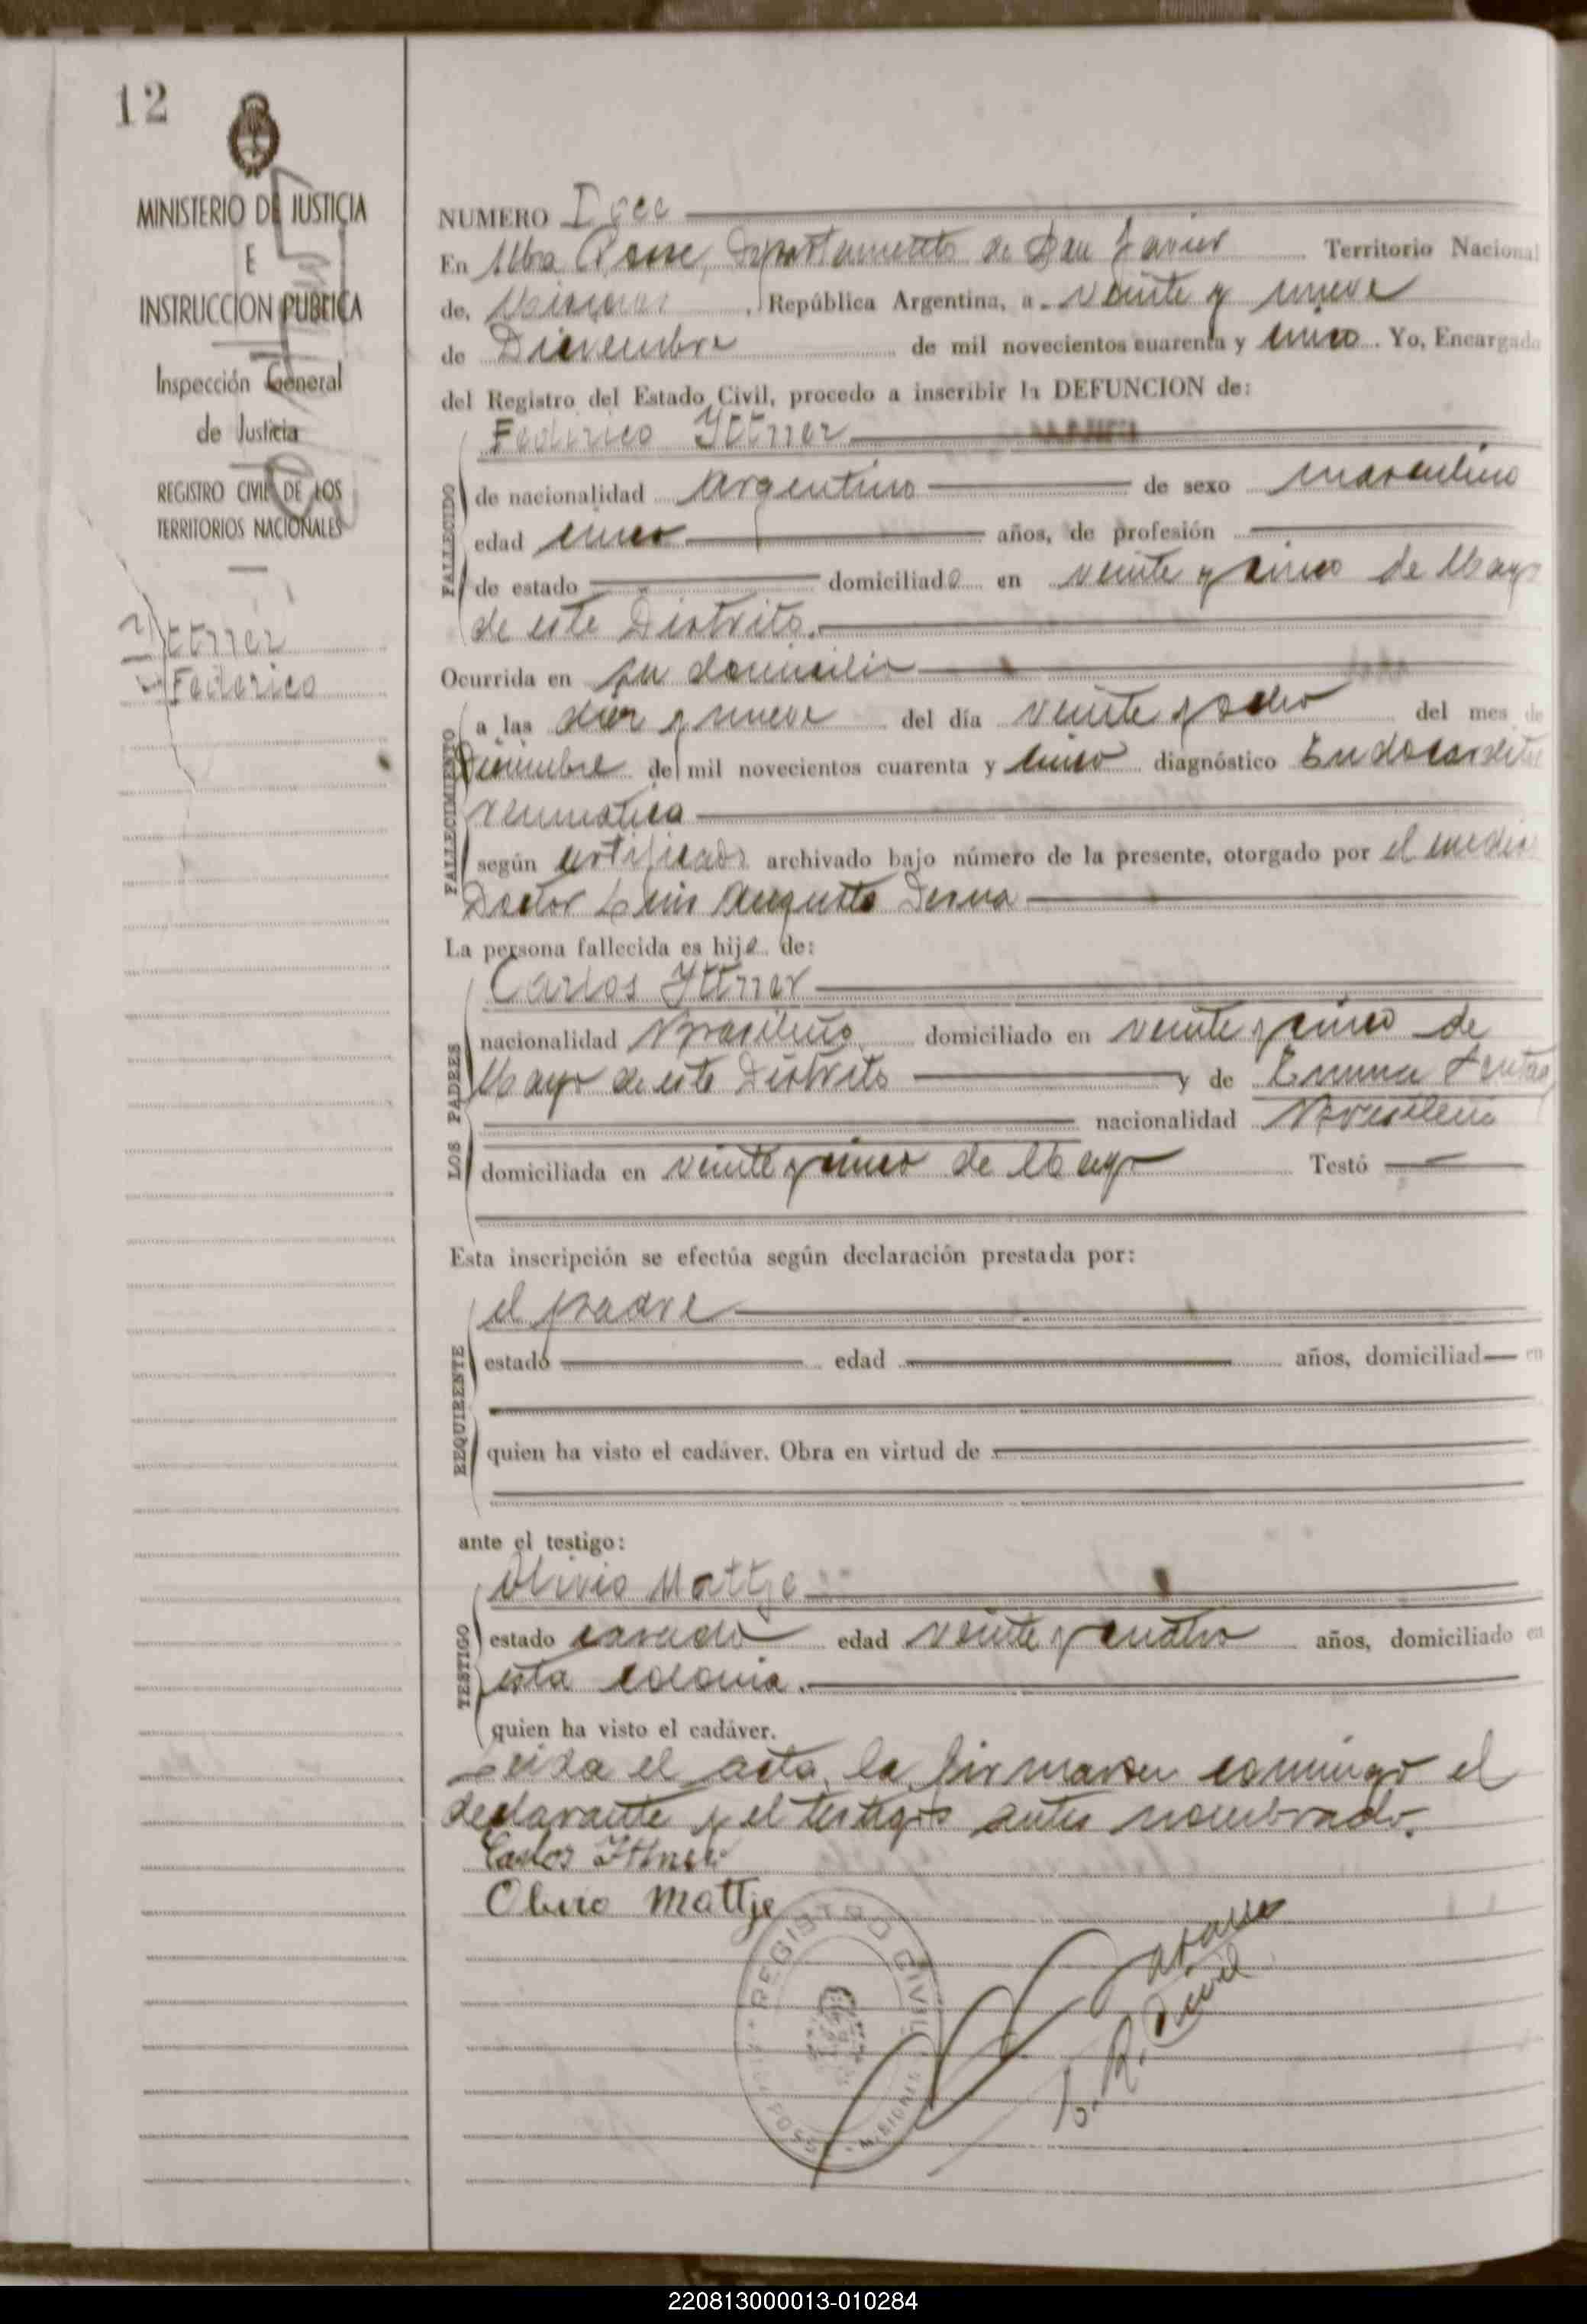 12
MINISTERIO DE JUSTICIA
E
INSTRUCCION PUBLICA
Inspección General
de Justicia
REGISTRO CIVIL DE LOS
TERRITORIOS NACIONALES
Ittner
Federico
NUMERO Doce
En Alba Posse, Departamento de San Javier Territorio Nacional
de, Misiones, República Argentina, a veinte y nueve
de Diciembre de mil novecientos cuarenta y cinco. Yo, Encargado
del Registro del Estado Civil, procedo a inscribir la DEFUNCION de:
Federico Ittner
FALLECIDO
de nacionalidad Argentino de sexo masculino
edad cinco años, de profesión
de estado domiciliado en veinte y cinco de Mayo
de este Distrito.
Ocurrida en su domicilio
FALLECIMIENTO
a las diez y nueve del día veinte y ocho del mes de
Diciembre de mil novecientos cuarenta y cinco diagnóstico Endocarditis
reumatica
según certificado archivado bajo número de la presente, otorgado por el medico
Doctor Luis Augusto
La persona fallecida es hijo de:
LOS PADRES
Carlos Ittner
nacionalidad Brasileño domiciliado en veinte y cinco de
Mayo de este Distrito y de Emma
nacionalidad Brasileña
domiciliada en veinte y cinco de Mayo Testó
Esta inscripción se efectúa según declaración prestada por:
REQUIRENTE
el padre
estado edad años, domiciliad en
quien ha visto el cadáver. Obra en virtud de
ante el testigo:
TESTIGO
Olivio Mattje
estado casado edad veinte y cuatro años, domiciliado en
esta colonia.
quien ha visto el cadáver.
Leida el acta, la firmaron conmigo el
declarante y el testigo antes nombrado.
Carlos Ittner
Olivio Mattje
REGISTRO CIVIL
ALBA POSSE - MISIONES
E. R. Civil
220813000013-010284